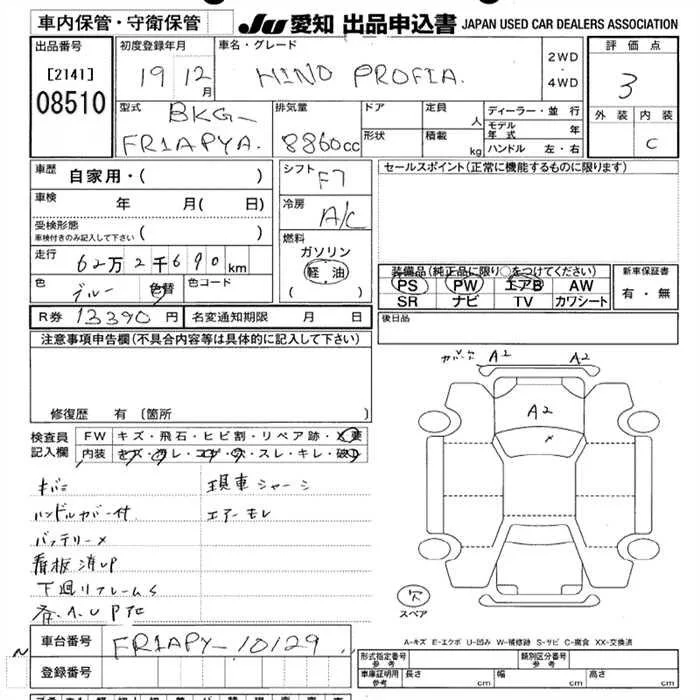 車内保管・守衛保管 JU 愛知 出品申込書 JAPAN USED CAR DEALERS ASSOCIATION
出品番号 初度登録年月 車名・グレード 2WD ・ 4WD 評価点
[2141] 19 12月 HINO PROFIA. 3
08510 外装 内装
型式 排気量 ドア 定員 人 ディーラー・並行
BKG- 形状 積載 kg モデル年式 年 C
FR1APYA. 8860cc ハンドル 左・右
車歴 自家用・( ) シフト F7 セールスポイント(正常に機能するものに限ります)
車検 年 月( 日) 冷房 A/C
受検形態
車検付きのみ記入して下さい ( ) 燃料
走行 62万2千690km ガソリン
軽油
( )
色 ブルー 色替 色コード
装備品(純正品に限り○をつけてください) 新車保証書
PS PW エアB AW 有・無
SR ナビ TV カワシート
R券 13390円 名変通知期限 月 日 後日品
注意事項申告欄(不具合内容等は具体的に記入して下さい)
修復歴 有 [箇所
A2 A2
A2
検査員記入欄 FW キズ・飛石・ヒビ割・リペア跡・×要
内装
現車シャーシ
ハンドルカバー付 エアーモレ
バッテリー×
看板消UP
スペア
A-キズ E-エクボ U-凹み W-補修跡 S-サビ C-腐食 XX-交換済
車台番号 FR1APY-10129
登録番号
形式指定番号 参考 類別区分番号 参考
車庫証明用 参考 長さ cm 幅 cm 高さ cm